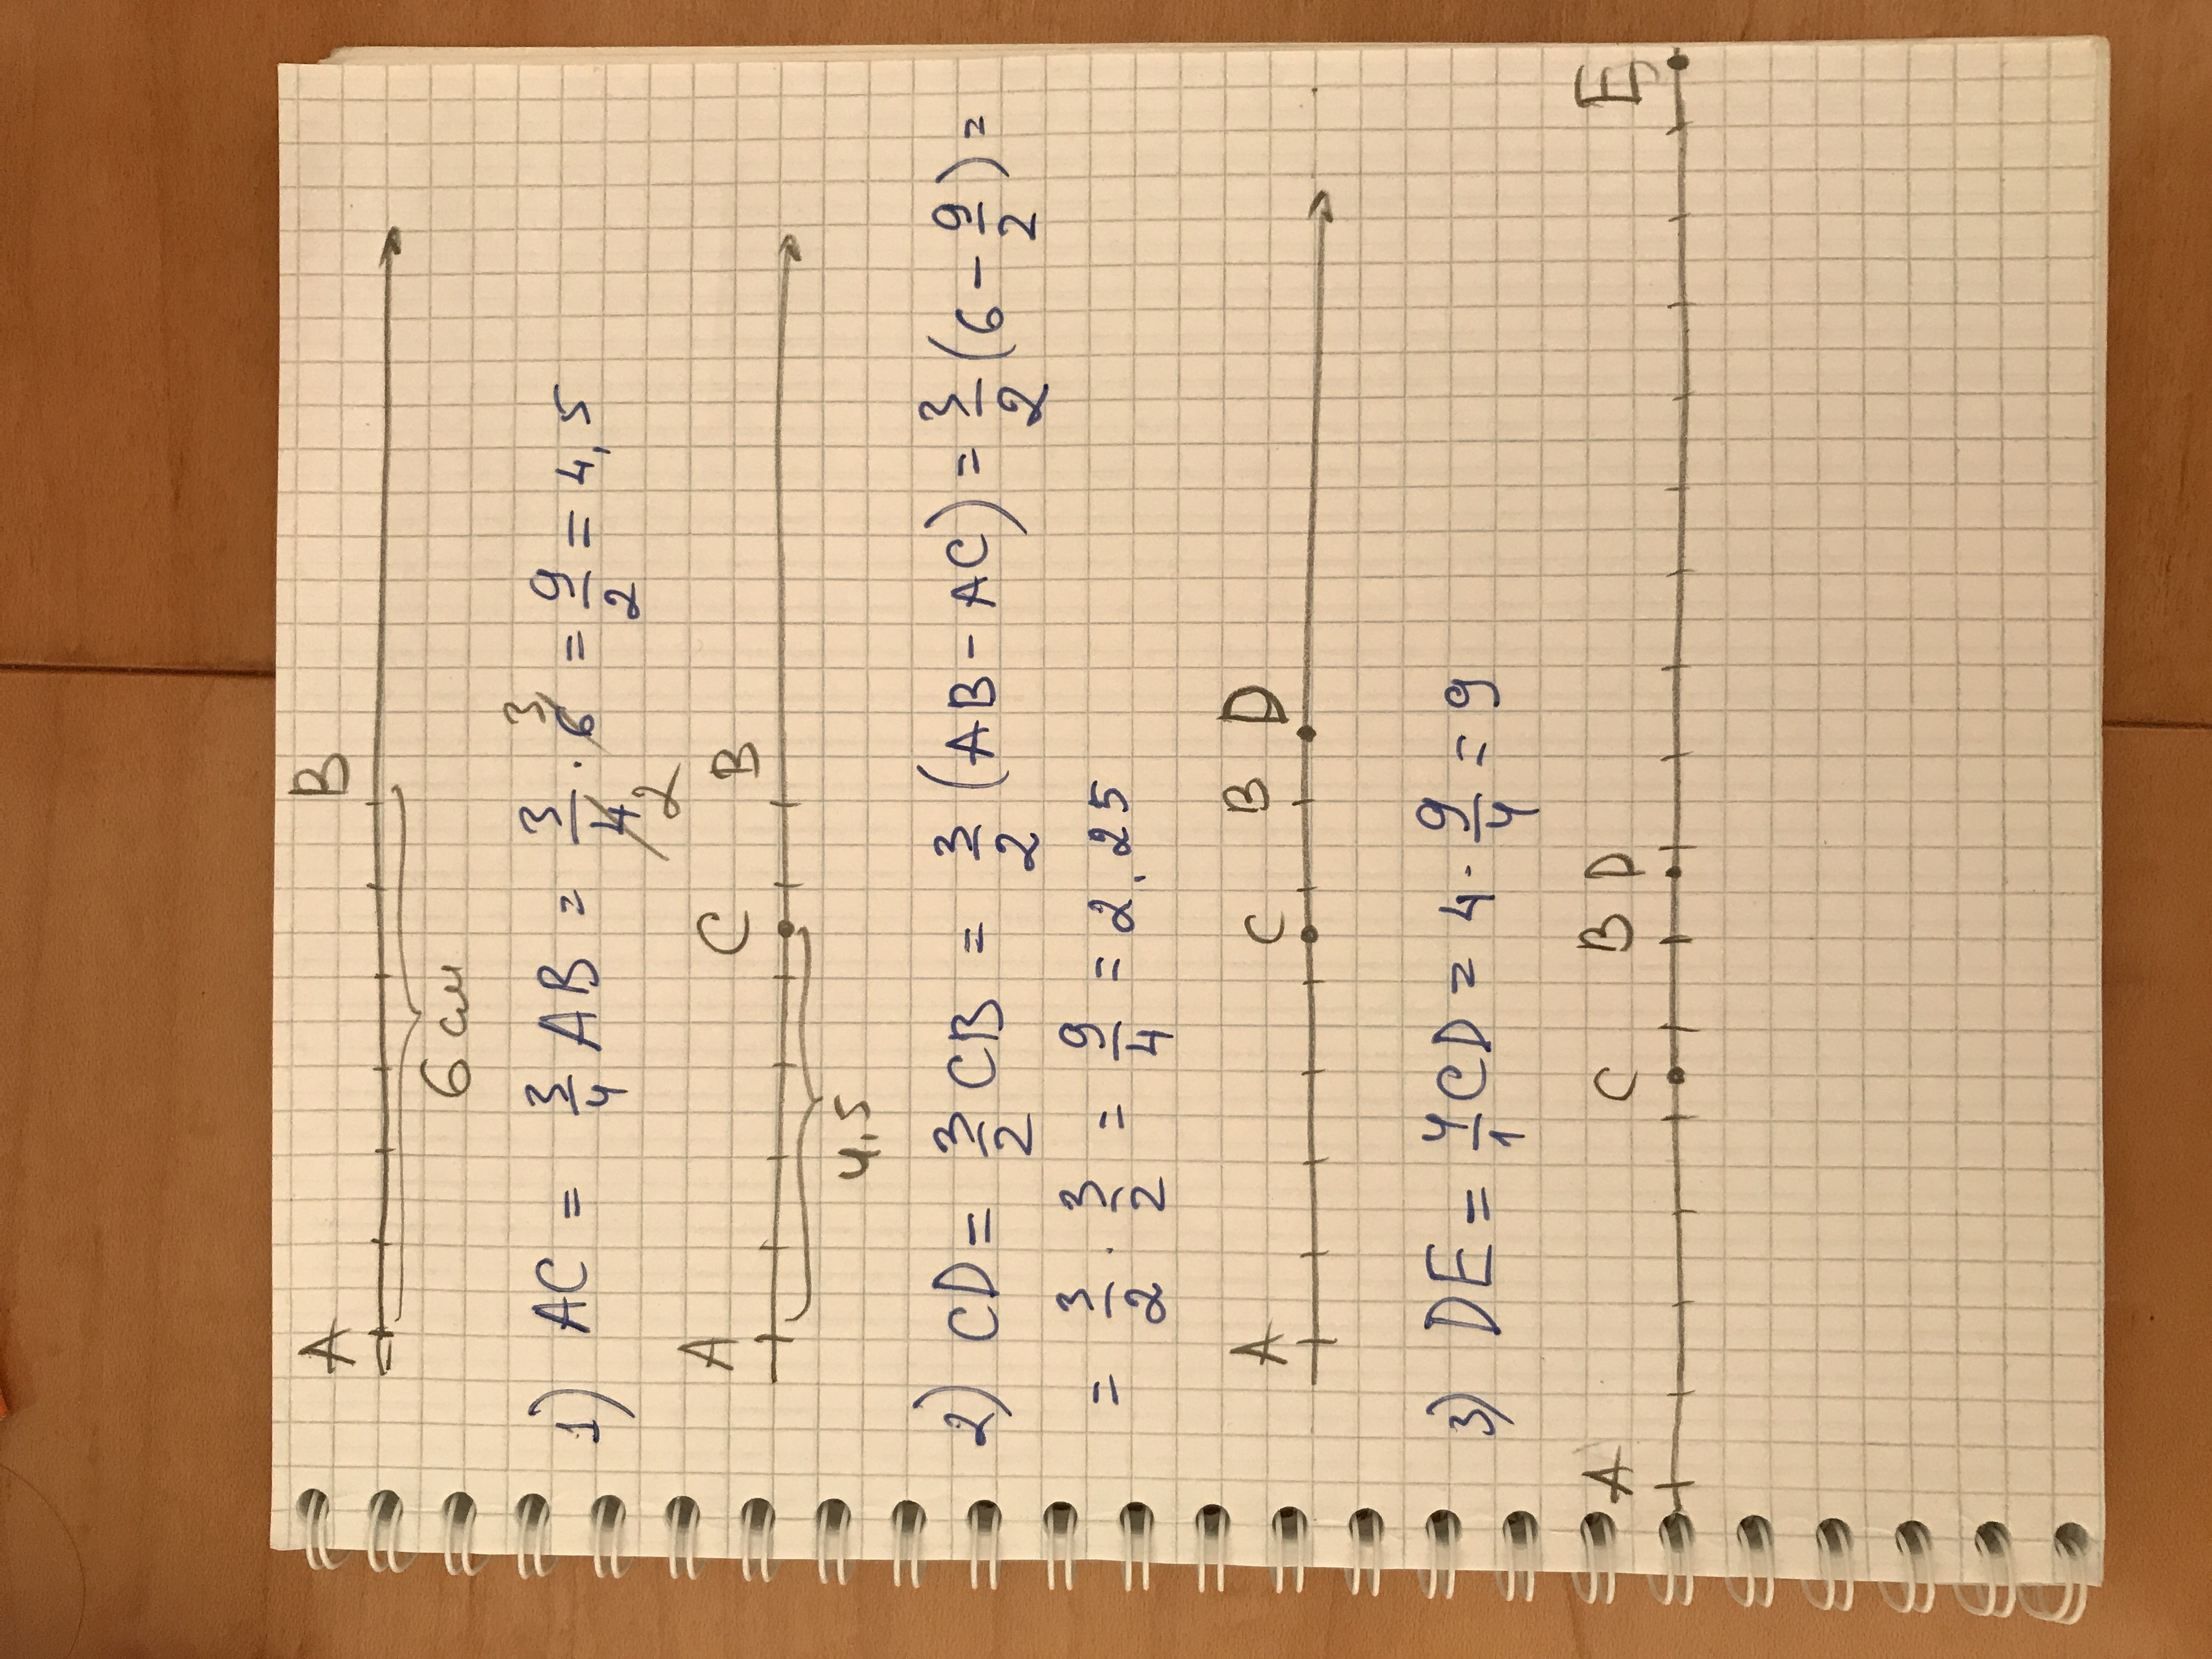 A B
6 см
1) AC = 3/4 AB = 3/4 · 6 = 9/2 = 4,5
3
2
A C B
4,5
2) CD = 3/2 CB = 3/2 (AB - AC) = 3/2 (6 - 9/2) =
= 3/2 · 3/2 = 9/4 = 2.25
A C B D
3) DE = 4/1 CD = 4 · 9/4 = 9
A C B D E